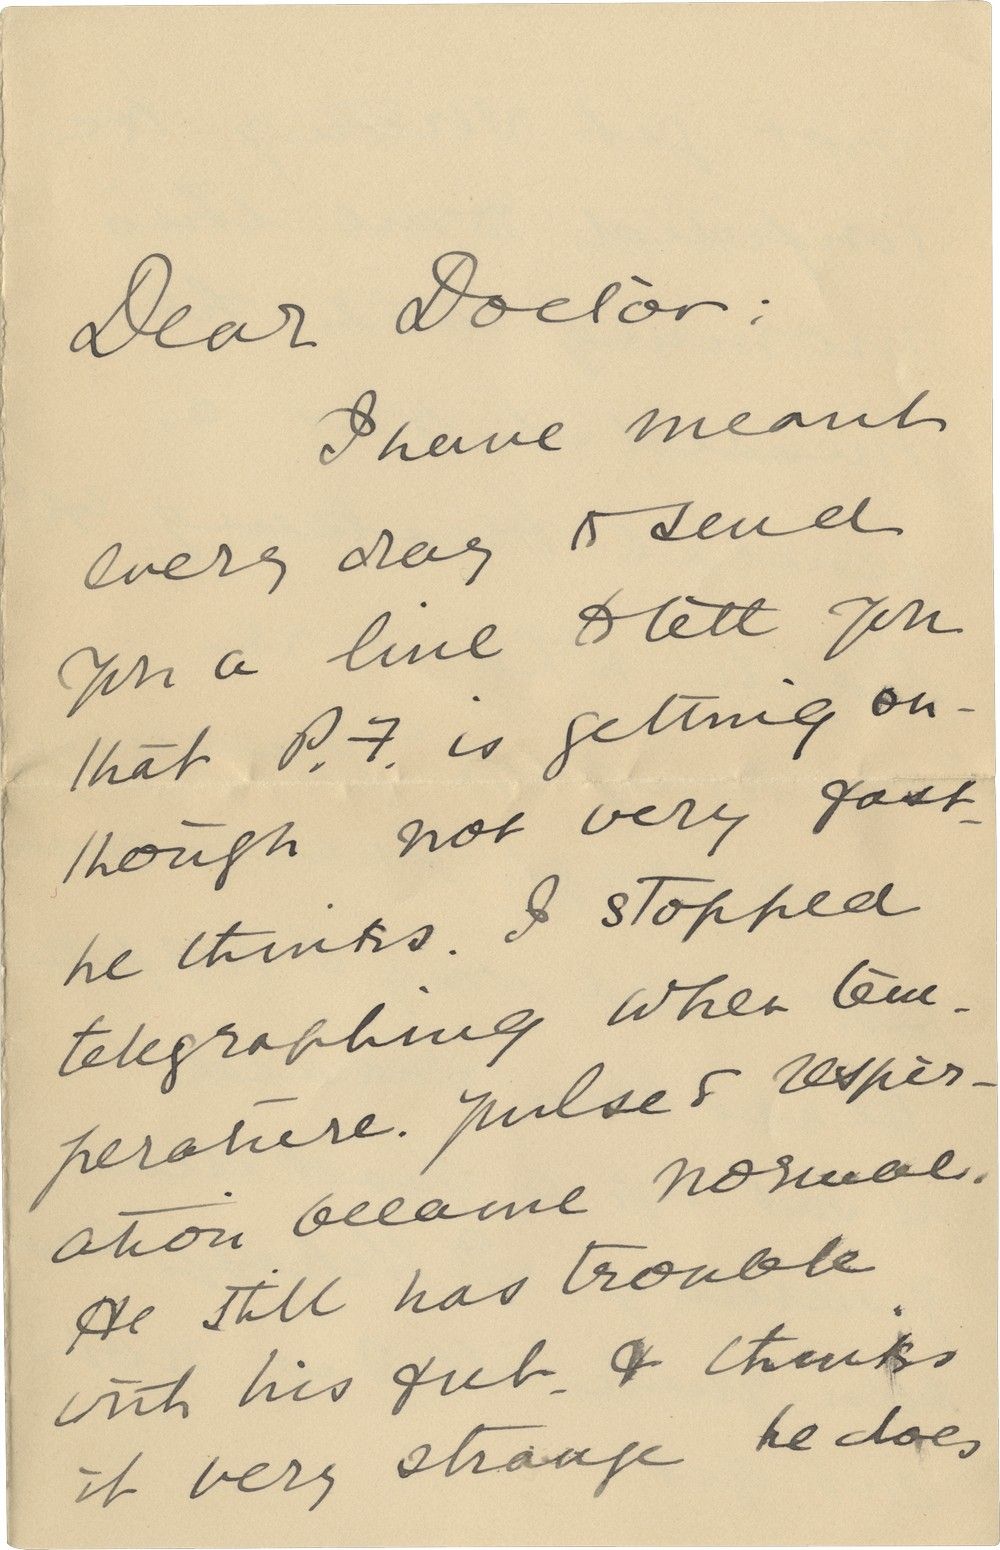 Dear Doctor:
I have meant
every day to send
you a line to tell you
that P.F. is getting on -
though not very fast -
he thinks. I stopped
telegraphing when tem-
perature. pulse & respir-
ation became normal.
He still has trouble
with his feet - & thinks
it very strange he does